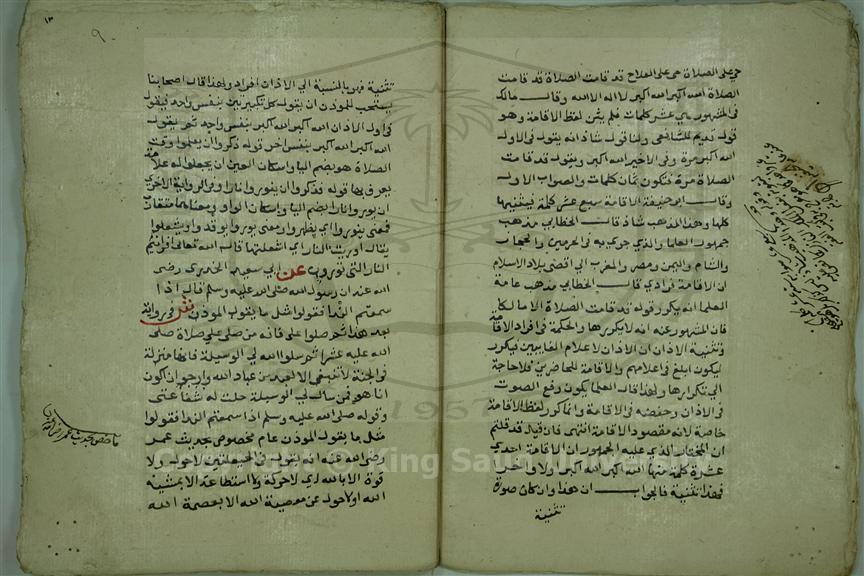 حي على الصلاة حي على الفلاح قد قامت الصلاة قد قامت
الصلاة الله اكبر الله اكبر لا اله الا الله وقال مالك
في المشهور هي عشر كلمات فلم يثن لفظ الاقامة وهو
قول قديم للشافعي ولنا قول شاذ انه يقول في الاول
الله اكبر مرة وفي الاخير الله اكبر ويقول قد قامت
الصلاة مرة فتكون ثمان كلمات والصواب الاول
وقال ابو حنيفة الاقامة سبع عشر كلمة فيثنيها
كلها وهذا المذهب شاذ قال الخطابي مذهب
جمهور العلما والذي جرى به في الحرمين والحجاز
والشام واليمن ومصر والمغرب الى اقصى بلاد الاسلام
ان الاقامة فرادي قال الخطابي مذهب عامة
العلما انه يكرر قوله قد قامت الصلاة الا مالكا
فان المشهور عنه انه لا يكررها والحكمة في افراد الاقامة
وتثنية الاذان ان الاذان لاعلام الغايبين فيكرر
ليكون ابلغ في اعلامهم والاقامة للحاضرين فلا حاجة
الى تكرارها ولهذا قال العلما يكون رفع الصوت
في الاذان وخفضه في الاقامة وانما كرر لفظ الاقامة
خاصة لانه مقصود الاقامة انتهى فان قيل قد قلتم
ان المختار الذي عليه الجمهور ان الاقامة احدي
عشرة كلمة منها الله اكبر الله اكبر اولا واخرا
فهذا تثنية فالجواب ان هذا وان كان صورة
تثنية
١٣
٩
تثنية فهو بالنسبة الي الاذان افراد ولهذا قال اصحابنا
يستحب للموذن ان يقول كل تكبيرتين بنفس واحد فيقول
في اول الاذان الله اكبر الله اكبر بنفس واحد ثم يقول
الله اكبر الله اكبر بنفس اخر قوله ذكروا ان يعلموا وقت
الصلاة هو بضم اليا واسكان العين اي يجعلوا له علامة
يعرف بها قوله فذكروا ان ينوروا نارا وفي الرواية الاخرى
ان يوروا نارا بضم اليا واسكان الواو ومعناهما متقارب
فمعنى ينوروا اي يظهروا ومعنى يوروا يوقدوا ويشعلوا
يقال اوريت النار اي اشعلتها قال الله تعالى افرايتم
النار التي تورون عن ابي سعيد الخدري رضى
الله عنه ان رسول الله صلى الله عليه وسلم قال اذا
سمعتم الندا فقولوا مثل ما يقول الموذن ش وفي رواية
بعد هذا ثم صلوا علي فانه من صلى علي صلاة صلى
الله عليه عشرا ثم سلوا الله لي الوسيلة فانها منزلة
في الجنة لا تنبغي الا لعبد من عباد الله وارجو ان اكون
انا هو فمن سال لي الوسيلة حلت له شفاعتي
وقوله صلى الله عليه وسلم اذا سمعتم الندا فقولوا
مثل ما يقول الموذن عام مخصوص بحديث عمر
رضى الله عنه انه يقول في الحيعلتين لاحول ولا
قوة الا بالله اي لا حركة ولا استطاعة الا بمشيئة
الله او لا حول عن معصية الله الا بعصمة الله
Copyright © King Saud University
1957